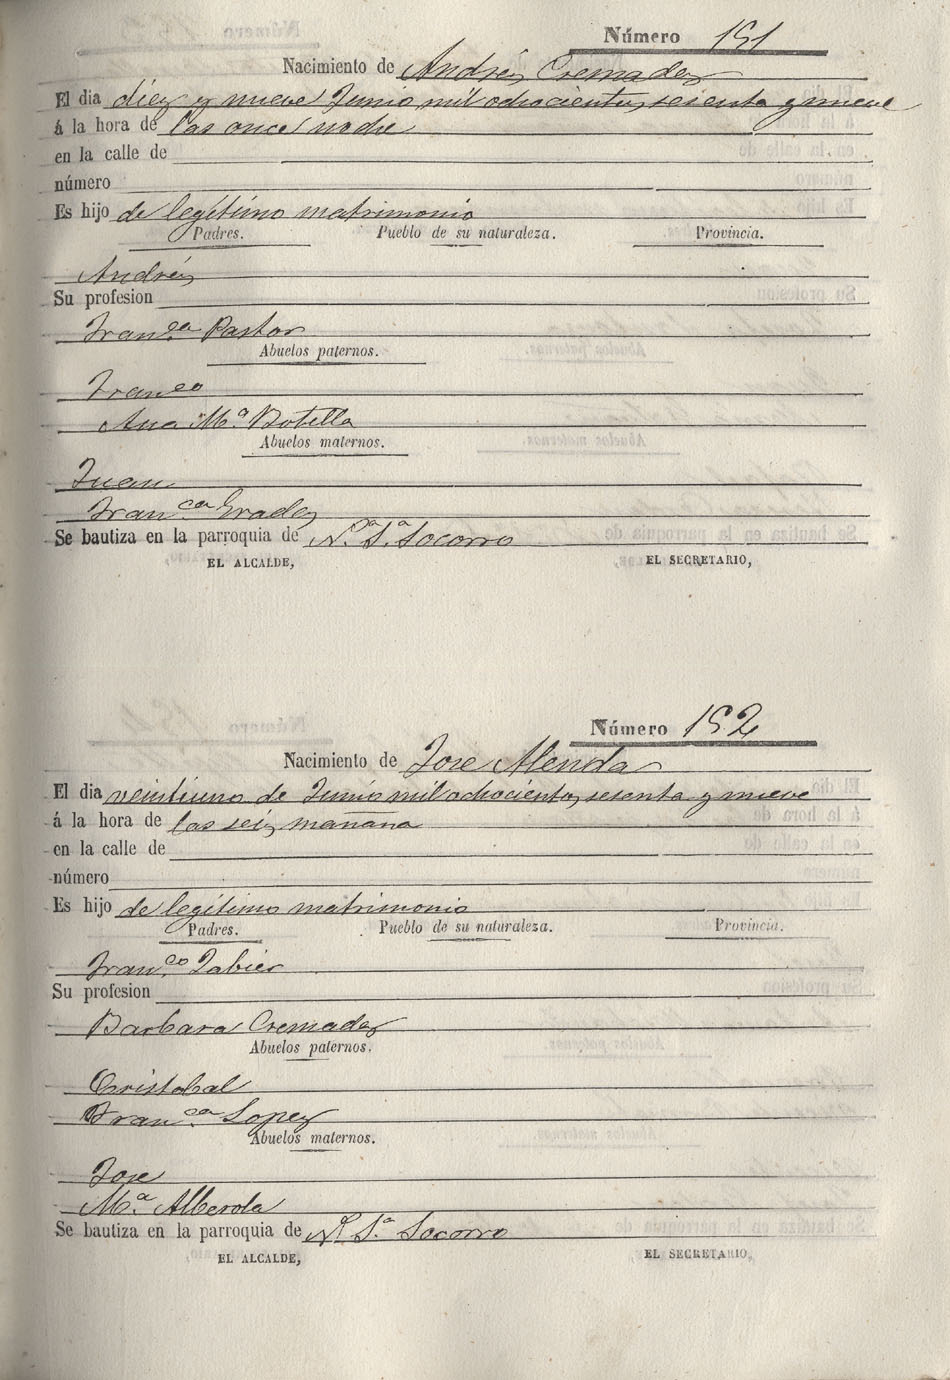 Número 151
Nacimiento de Andrés Cremades
El dia diez y nueve Junio mil ochocientos sesenta y nueve
á la hora de las once noche
en la calle de
número
Es hijo de legítimo matrimonio
Padres. Pueblo de su naturaleza. Provincia.
Andrés
Su profesion
Fran.ca Pastor
Abuelos paternos.
Franco
Ana Mª Botella
Abuelos maternos.
Juan
Fran.ca Grades
Se bautiza en la parroquia de Nª Sª Socorro
EL ALCALDE, EL SECRETARIO,
Número 152
Nacimiento de Jose Alenda
El dia veintiuno de Junio mil ochocientos sesenta y nueve
á la hora de las seis mañana
en la calle de
número
Es hijo de legítimo matrimonio
Padres. Pueblo de su naturaleza. Provincia.
Fran.co Jabier
Su profesion
Barbara Cremades
Abuelos paternos.
Cristobal
Fran.ca Lopez
Abuelos maternos.
Jose
Mª Alberola
Se bautiza en la parroquia de Nª Sª Socorro
EL ALCALDE, EL SECRETARIO,